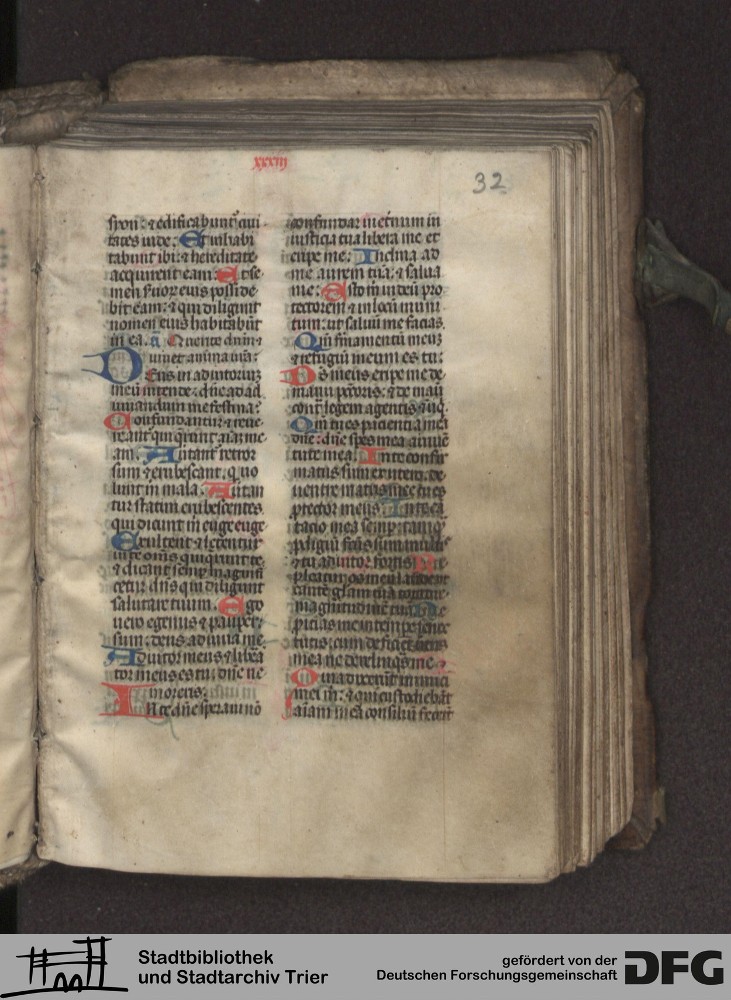 xxxiij
32
syon: ⁊ edificabunt͛ ciui
tates iude: Et inhabi
tabunt ibi: ⁊ hereditate
acquirent eam: Et se
men seruoꝝ eius posside
bit eam: ⁊ qui diligunt
nomen eius habitabūt
in ea. a Querite dn̄m ⁊
uiuet anima vr̄a:
Deus in adiutoriuꝫ
meū intende: dn̄e ad ad
iuuandum me festina:
Confundantur ⁊ reue
reant̄ qui querūt aīam me
am: Auertant̄ retror
sum ⁊ erubescant: q̇ uo
lunt m̄ mala: Auertan
tur statim erubescentes:
qui dicunt m̄ euge euge:
Exultent ⁊ letentur
in te om̄s qui querūt te:
⁊ dicant semꝑ magnifi
cetur dn̄s qui diligunt
salutare tuum. Ego
uero egenus ⁊ pauper
sum: deus adiuua me
Adiutor meus ⁊ libera
tor meus es tu: dn̄e ne
moreris:
In te dn̄e speraui nō
confundar in et̄num in
iusticia tua libera me et
eripe me: Inclina ad
me aurem tuā: ⁊ salua
me: Esto m̄ in deū pro
tectorem ⁊ in locū muni
tum: ut saluū me facias.
Qm̄ firmamentū meuꝫ
⁊ refugiū meum es tu:
Ds̄ meus eripe me de
manu pctōris: ⁊ de manu
contͣ legem agentis ⁊ iniq̇
Qm̄ tu es paciencia mea
dn̄e: dn̄e spes mea a iuuē
tute mea: In te confir
matus sum ex utero: de
uentre matris mee tu es
ꝓtector meus: In te cā
tacio mea semꝑ: tamq̄
ꝓdigiū fcūs sum multis
⁊ tu adiutor fortis Re
pleatur os meum laude ut
cantē gl̄iam tuā tota die
magnitudinē tuā Ne
ꝓicias me in tempore senec
tutis: cum defecerit uirtus
mea ne derelinq̄s me.
Quia dixerūt inimici
mei m̄: ⁊ qui custodiebāt
aīam meā consiliū fecerūt
Stadtbibliothek
und Stadtarchiv Trier
gefördert von der
Deutschen Forschungsgemeinschaft
DFG